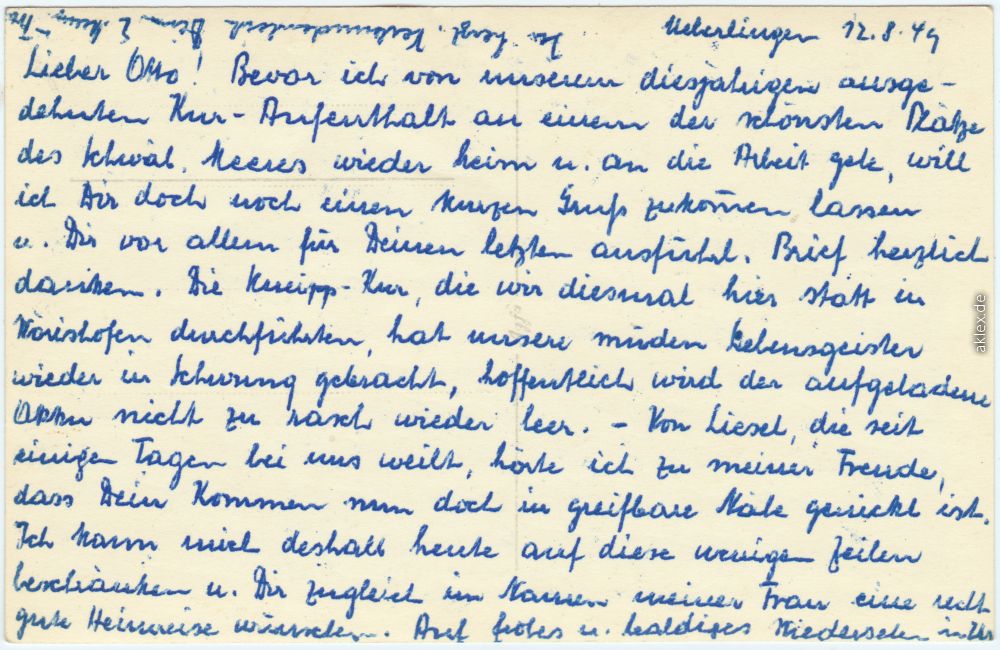 Ueberlingen 12.8.49
Lieber Otto! Bevor ich von unserem diesjährigen ausge-
dehnten Kur-Aufenthalt an einem der schönsten Plätze
des Schwäb. Meeres wieder heim u. an die Arbeit gehe, will
ich Dir doch noch einen kurzen Gruß zukom̄en lassen
u. Dir vor allem für Deinen letzten ausführl. Brief herzlich
danken. Die Kneipp-Kur, die wir diesmal hier statt in
Wörishofen durchführten, hat unsere müden Lebensgeister
wieder in Schwung gebracht, hoffentlich wird der aufgeladene
Akku nicht zu rasch wieder leer. - Von Liesel, die seit
einigen Tagen bei uns weilt, hörte ich zu meiner Freude,
dass Dein Kommen nun doch in greifbare Nähe gerückt ist.
Ich kann mich deshalb heute auf diese wenigen Zeilen
beschränken u. Dir zugleich im Namen meiner Frau eine recht
gute Heimreise wünschen. Auf frohes u. baldiges Wiedersehen in
In herzl. Verbundenheit Dein
aklex.de